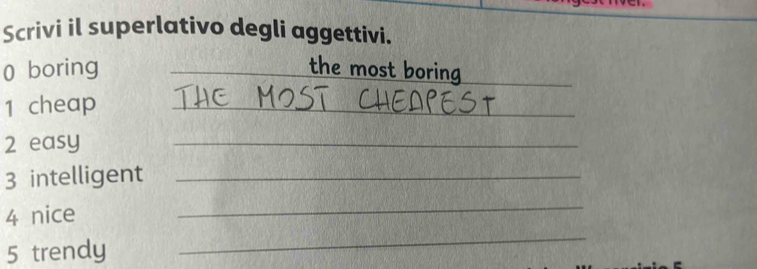 Scrivi il superlativo degli aggettivi.
0 boring the most boring
1 cheap THE MOST CHEAPEST
2 easy
3 intelligent
4 nice
5 trendy